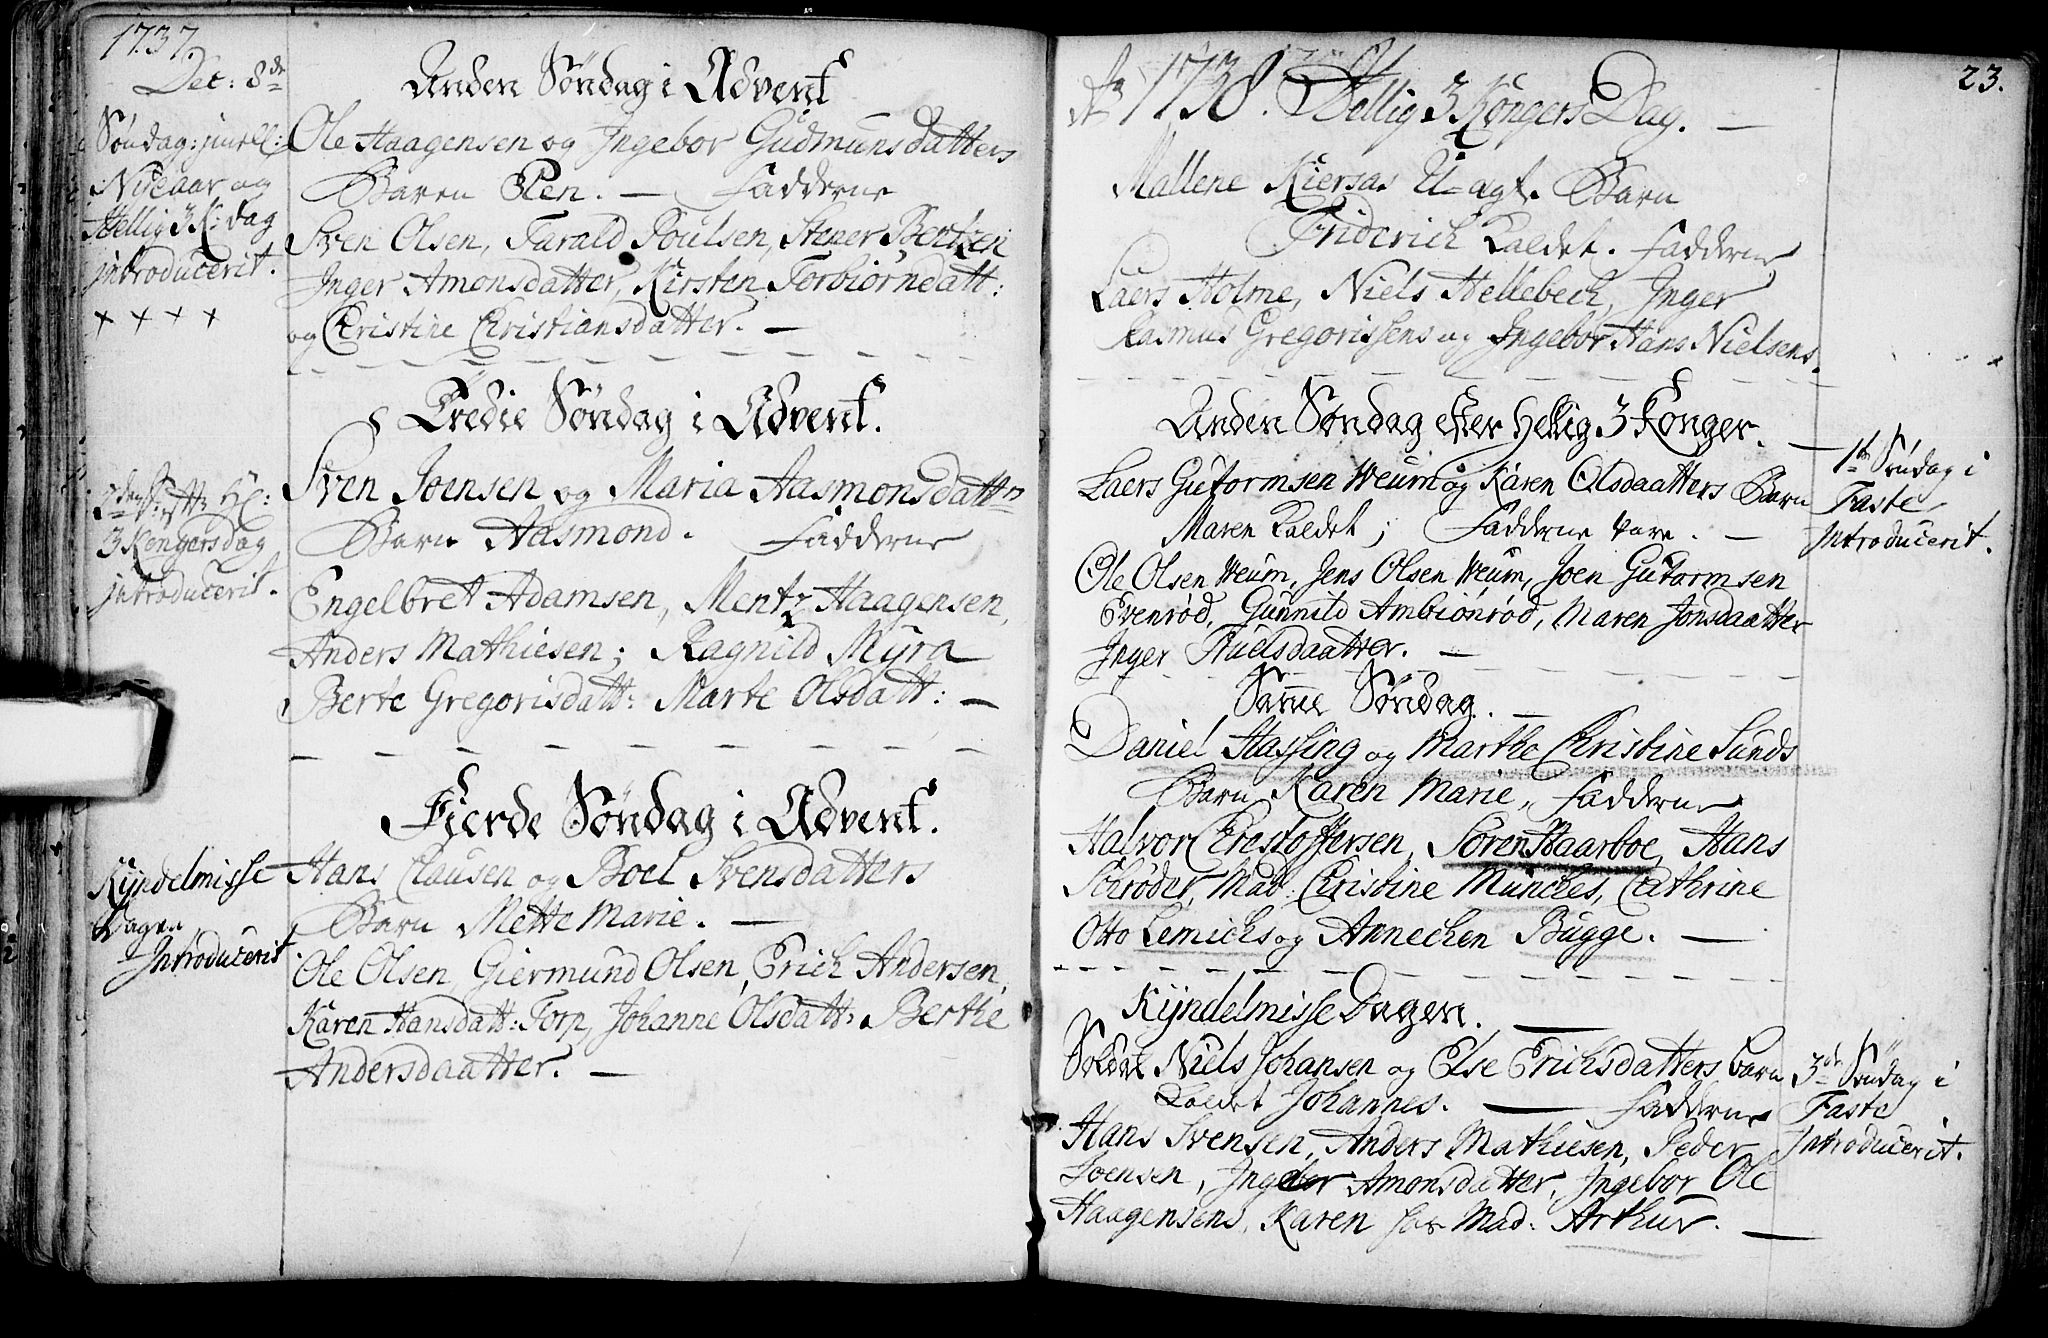 1737.
Dec: 8de
Anden Söndag i Advent
Söndag: imell:
Nÿeaar og
Hellig 3 K: dag
introducerit.
++++
Ole Haagensen og Ingebor Gudmunsdatters
Barn Pen. — Fadderne
Sven Olsen, Tarald Poulsen, Stener Bertzen
Inger Amonsdatter, Kirsten Torbiörnsdatt:
og Christine Christiansdatter. —
Tredie Söndag i Advent.
Hl:
3 Kongersdag
introducerit.
Sven Joensen og Maria Aasmonsdattrs
Barn Aasmond. Fadderne
Engelbret Adamsen, Mentz Haagensen,
Anders Mathiesen; Ragnild Myra
Berte Gregorisdatt: Marte Olsdatt: —
Fierde Söndag i Advent.
Kÿndelmisse
Dagen
Introducerit
Hans Clausen og Boel Svensdatters
Barn Mette Marie. —
Ole Olsen, Giermund Olsen, Erich Andersen,
Karen Hansdatt: Torp, Johanne Olsdatt: Berthe
Andersdaatter. —
23.
Ao 1738. Hellig 3 Kongers Dag. —
Mallene Kiersas U-ægt. Barn
Friderich kaldet. Fadderne
Laers Holme, Niels Hellebech, Inger
Rasmus Gregorissens og Ingebor Hans Nielsens.
Anden Söndag efter Hellig 3 Konger. —
Laers Gutormsen Weum og Karen Olsdaatters Barn
Maren kaldet; Fadderne vare. —
1te Söndag i
Faste
Introducerit.
Ole Olsen Weum, Jens Olsen Weum, Joen Gutormsen
Evenrød, Gunnild Ambiönrød, Maren Jonsdaatter
Inger Truelsdaatter. —
Same Söndag. —
Daniel Hassing og Marthe Christine Sunds
Barn Karen Marie, Fadderne
Halvor Christoffersen, Sören Haarboe, Hans
Schrøder, Mad: Christine Munches, Cathrine
Otto Lemichs og Annechen Bugge. —
Kÿndelmisse Dagen. —
Soldat Niels Johansen og Else Erichsdatters barn
kaldet Johannes. — Fadderne
3de Söndag i
Faste
Introducerit.
Hans Svensen, Anders Mathiesen, Peder
Joensen, Ingebor Amonsdatter, Ingebor Ole
Haagensens, Karen hos Mad: Arthur. —